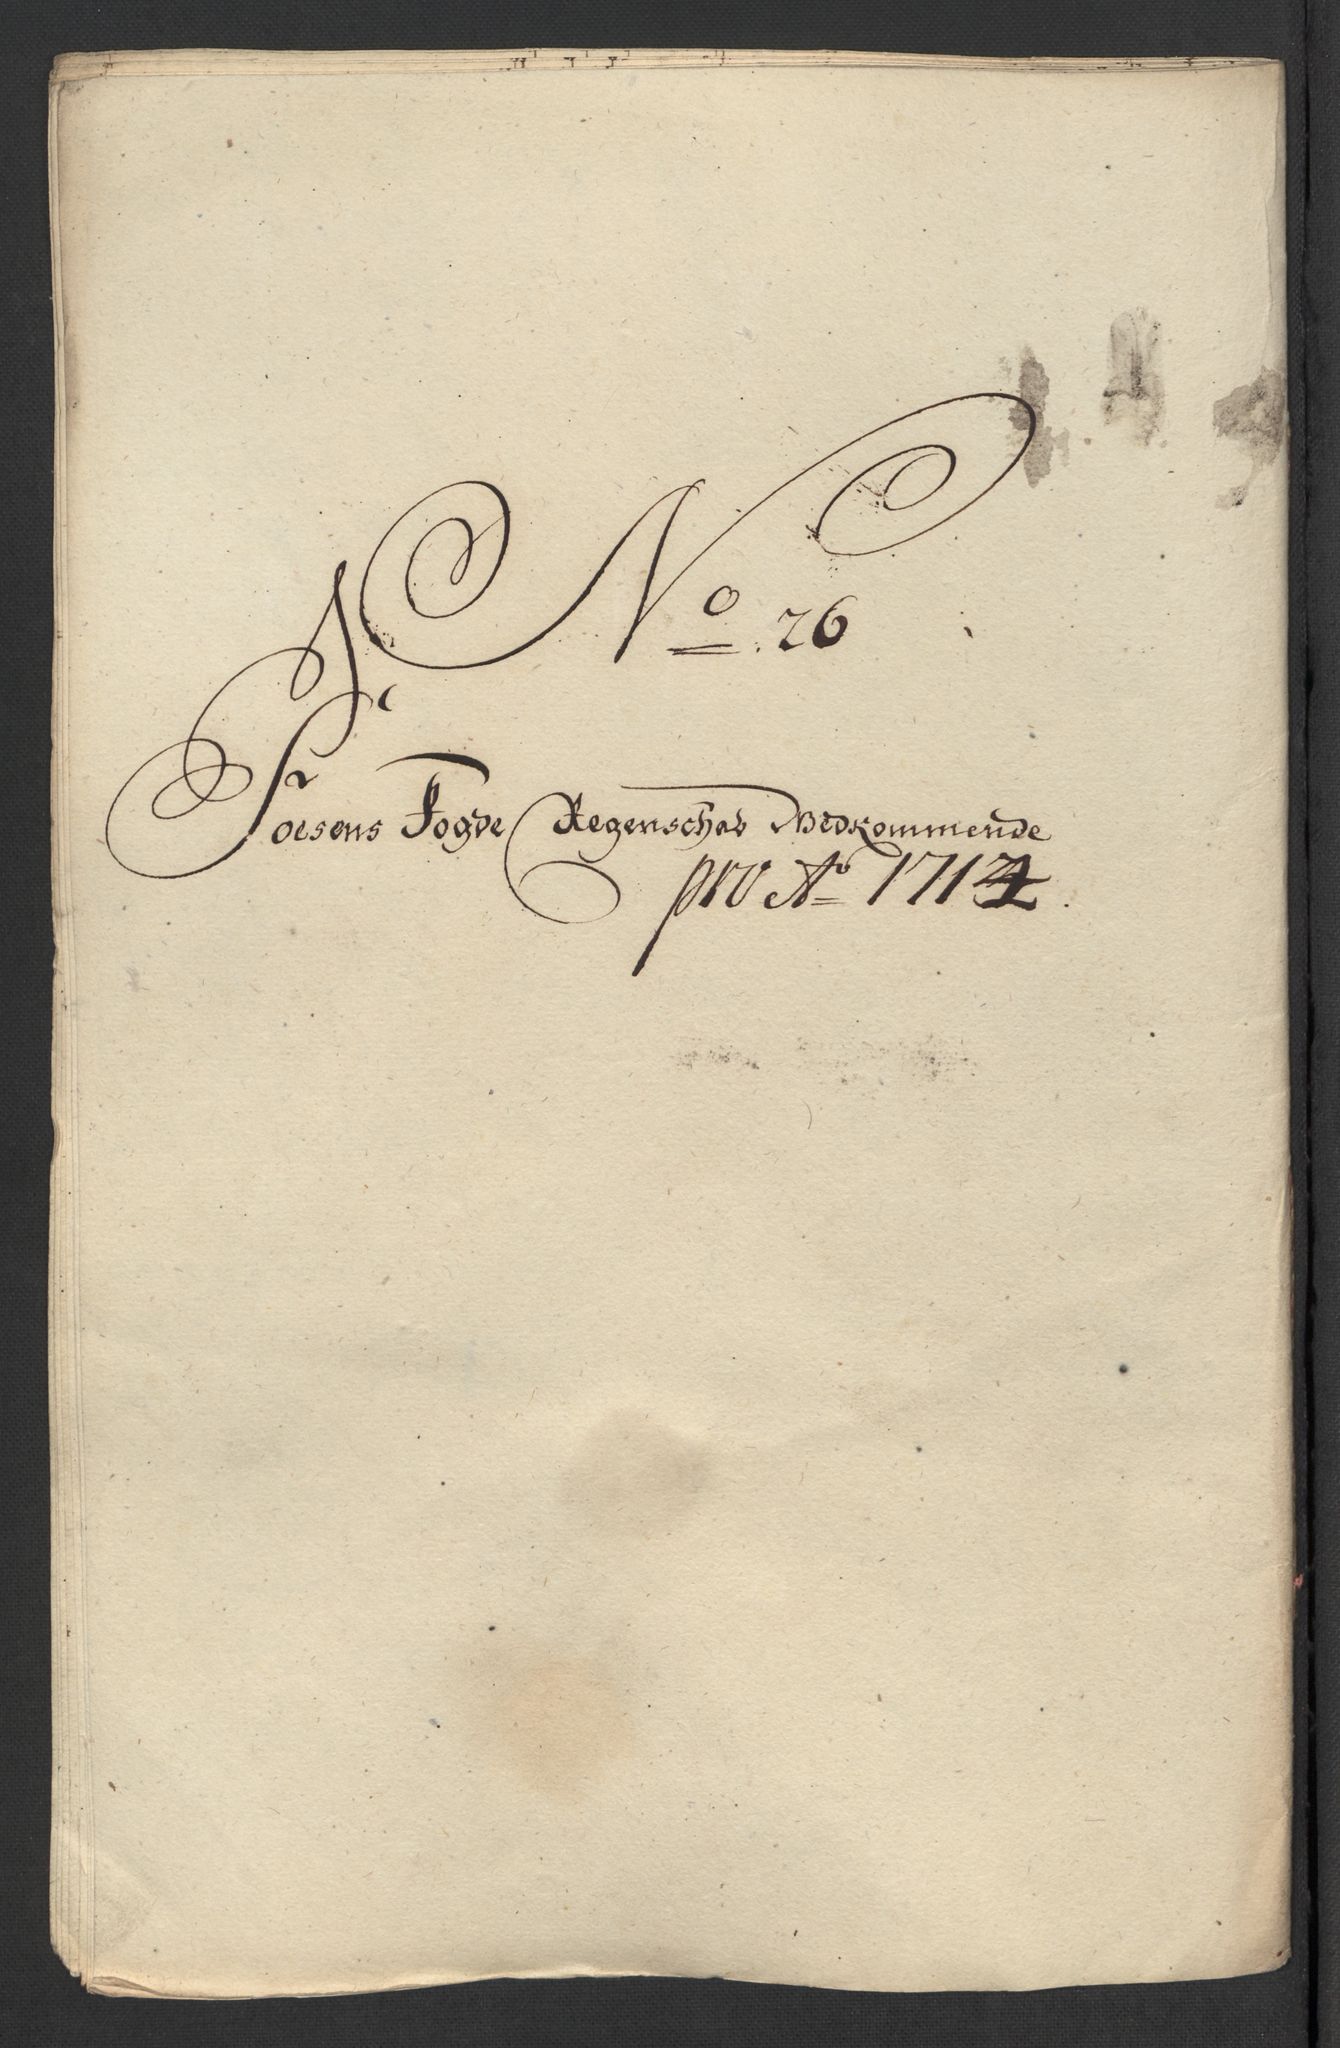 No. 26
Foesens Fogde Regenschab Vedkommende
pro Ao 1714.